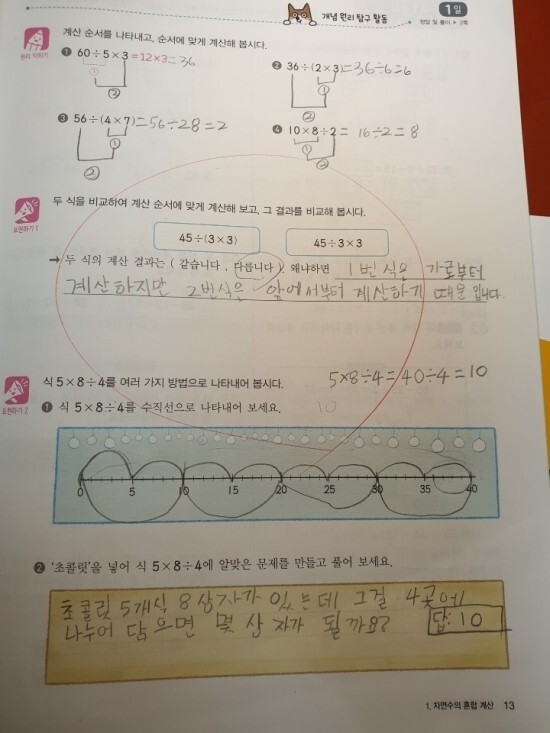 개념 원리 탐구 활동
1일
정답 및 풀이 ▶ 2쪽
원리 익히기
계산 순서를 나타내고, 순서에 맞게 계산해 봅시다.
❶ 60÷5×3=12×3=36
①
②
❷ 36÷(2×3)=36÷6=6
①
②
❸ 56÷(4×7)=56÷28=2
①
②
❹ 10×8÷2= 16÷2=8
①
②
표현하기 1
두 식을 비교하여 계산 순서에 맞게 계산해 보고, 그 결과를 비교해 봅시다.
45÷(3×3)
45÷3×3
➔ 두 식의 계산 결과는 ( 같습니다 , 다릅니다 ). 왜냐하면 1번 식은 가로부터
계산하지만 2번식은 앞에서부터 계산하기 때문 입니다.
표현하기 2
식 5×8÷4를 여러 가지 방법으로 나타내어 봅시다.
5×8÷4=40÷4=10
❶ 식 5×8÷4를 수직선으로 나타내어 보세요.
10
0 5 10 15 20 25 30 35 40
❷ '초콜릿'을 넣어 식 5×8÷4에 알맞은 문제를 만들고 풀어 보세요.
초콜릿 5개식 8상자가 있는데 그걸 4곳에
나누어 담으면 몇 상자가 될까요?
답: 10
1. 자연수의 혼합 계산 13